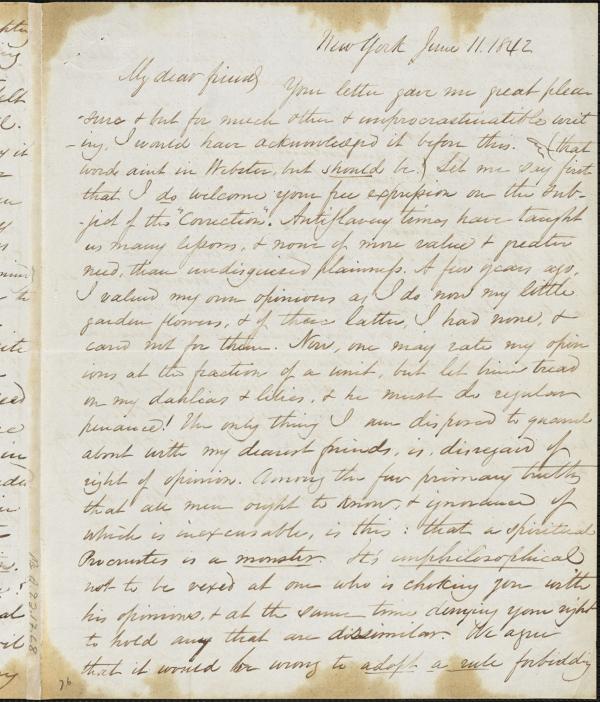 New York June 11. 1842
My dear friend, Your letter gave me great plea-
-sure & but for much other & unprocrastinatible writ-
-ing, I would have acknowledged it before this. (that
word aint in Webster, but should be.) Let me say first
that I do welcome your free expression on the sub-
-ject of the "Correction". Antislavery times have taught
us many lessons, & none of more value & greater
need, than undisguised plainness. A few years ago,
I valued my own opinions as I do now my little
garden flowers, & of these latter, I had none, &
cared not for them. Now, one may rate my opin
ions at the fraction of a unit, but let him tread
on my dahlias & lilies, & he must do regular
penance! The only thing I am disposed to quarrel
about with my dearest friends, is, disregard of
right of opinion. Among the few primary truths
that all men ought to know, & ignorance of
which is inexcusable, is this: that a spiritual
Procrustes is a monster. It's unphilosophical
not to be vexed at one who is choking you with
his opinions, & at the same time denying your right
to hold any that are dissimilar. We agree
that it would be wrong to adopt a rule forbidding
76